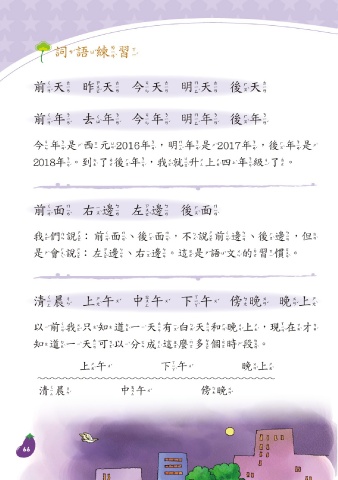 詞語練習
前天 昨天 今天 明天 後天
前年 去年 今年 明年 後年
今年是西元2016年，明年是2017年，後年是
2018年。到了後年，我就升上四年級了。
前面 右邊 左邊 後面
我們說：前面、後面，不說前邊、後邊，但
是會說：左邊、右邊。這是語文的習慣。
清晨 上午 中午 下午 傍晚 晚上
以前我只知道一天有白天和晚上，現在才
知道一天可以分成這麼多個時段。
上午 下午 晚上
清晨 中午 傍晚
66